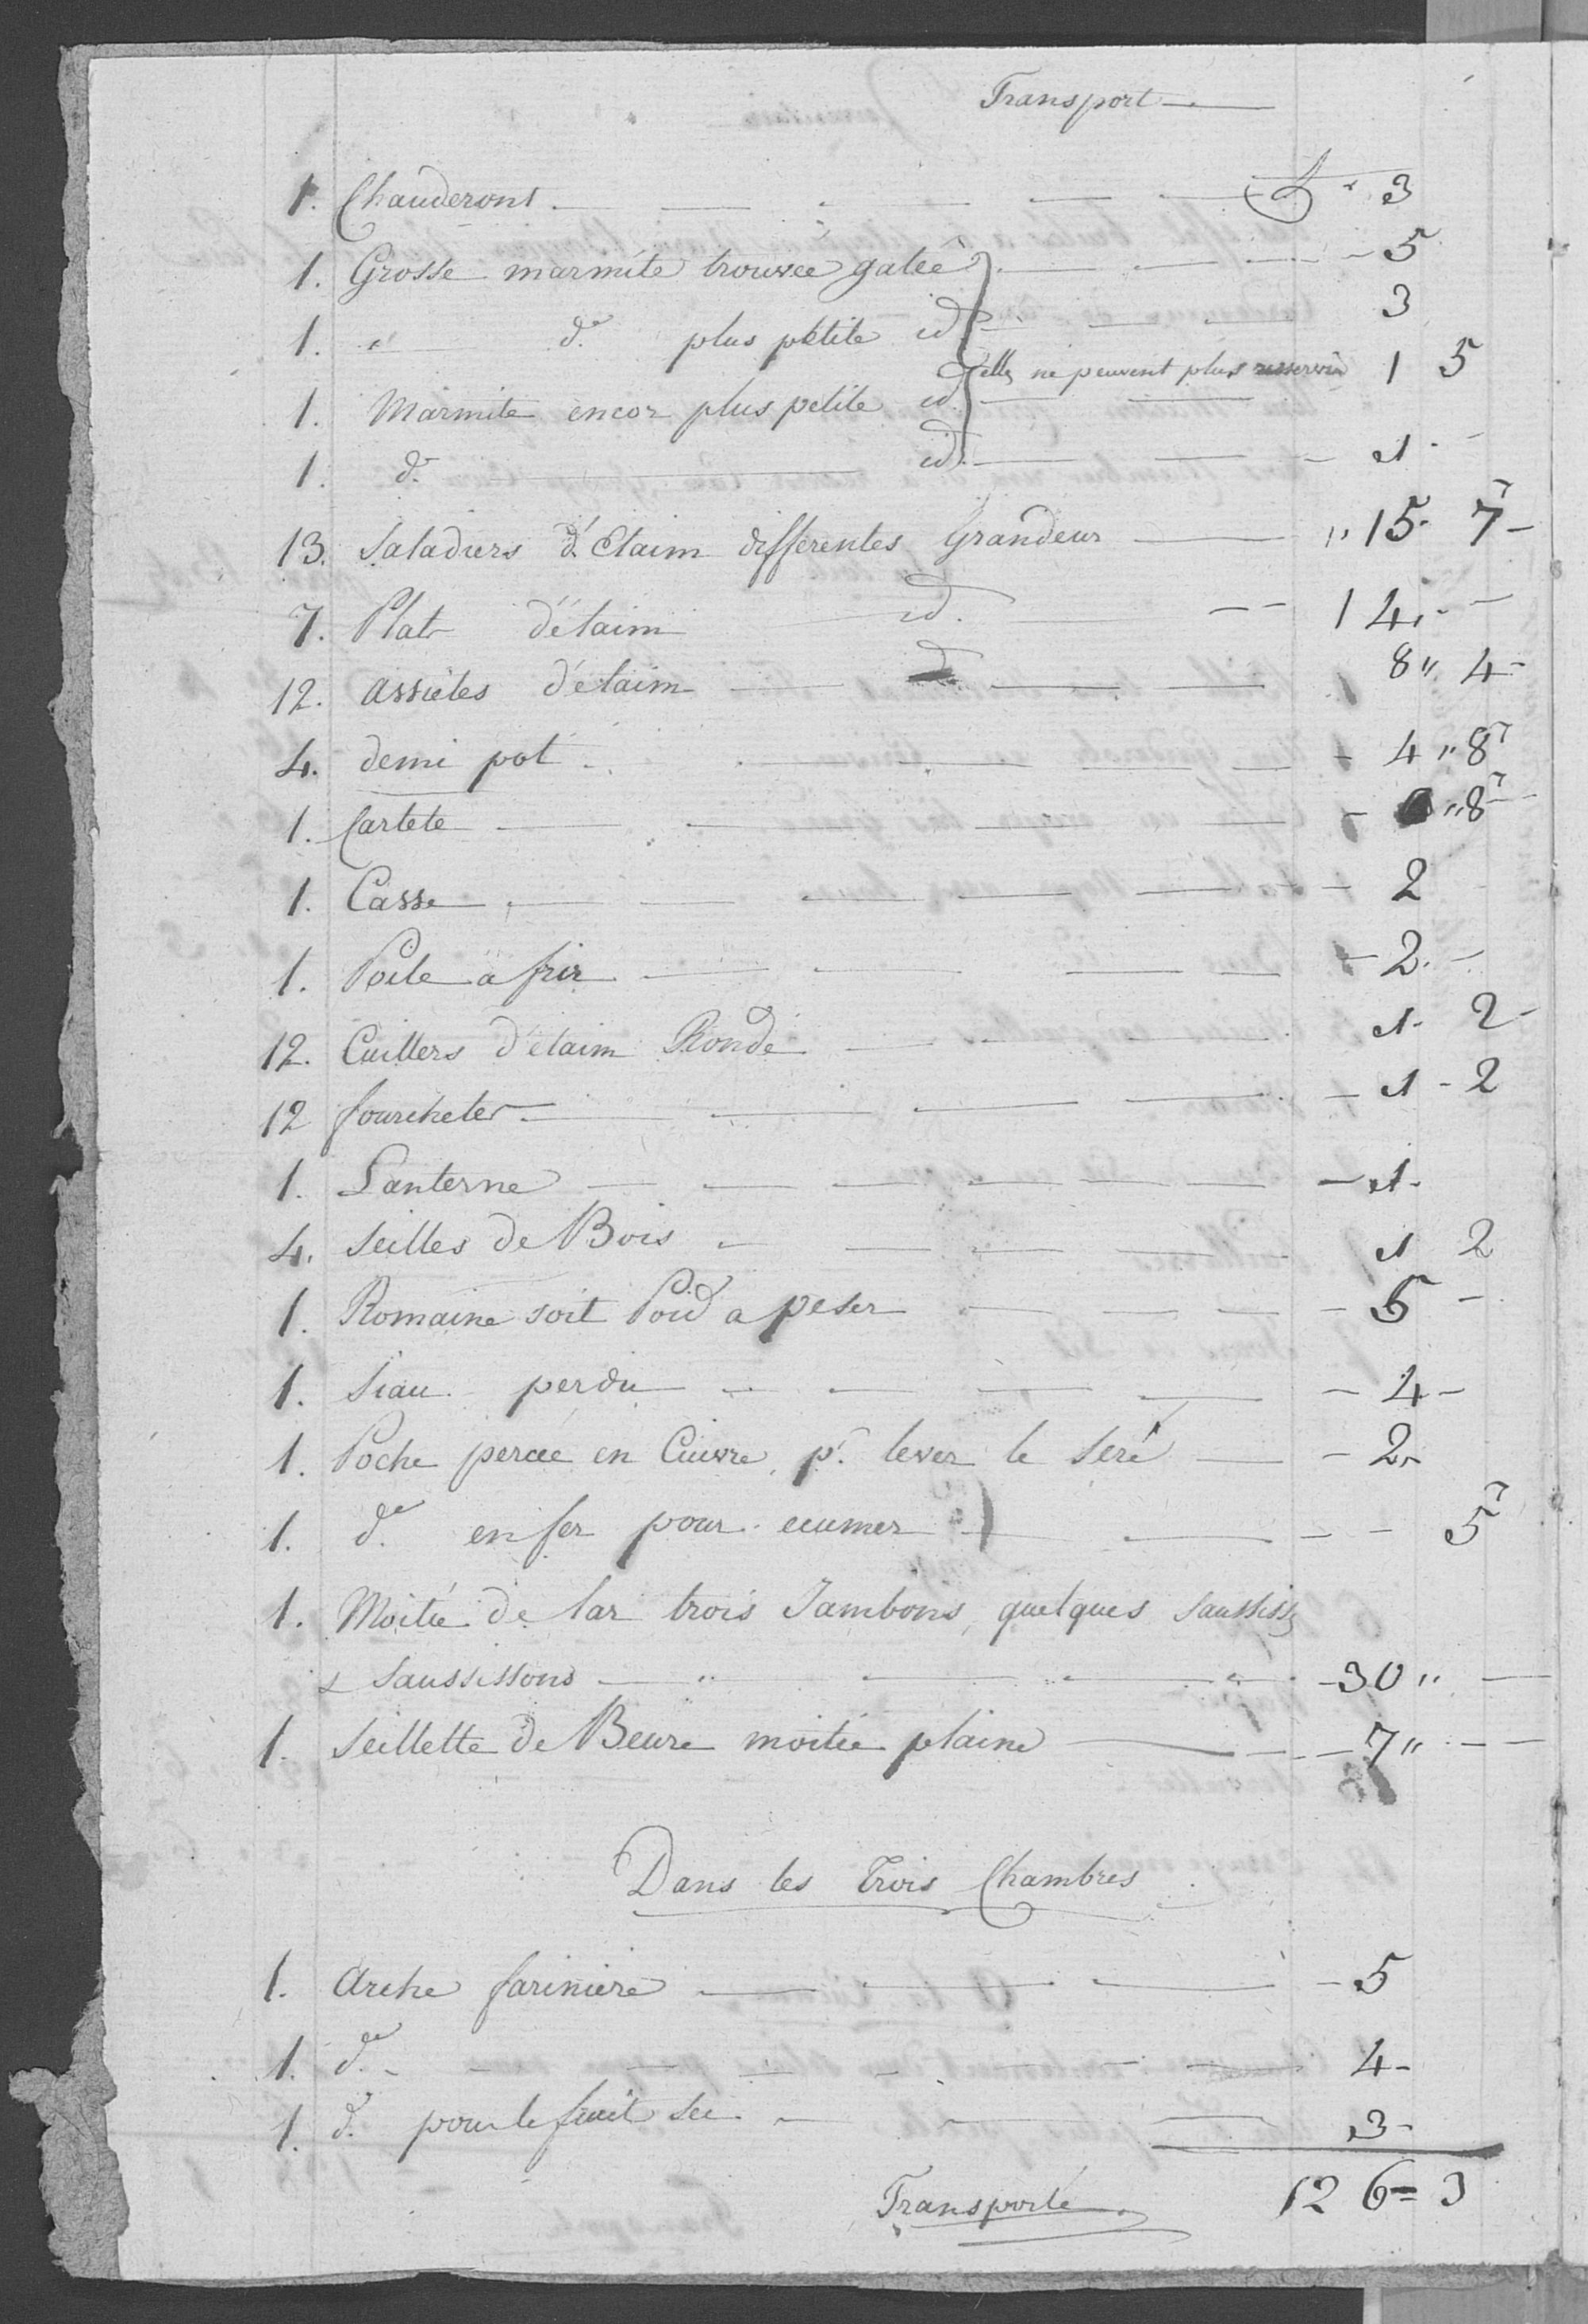 Transport
1. Chauderons £ 3
1. Grosse marmite trouvée gatée 5
1. " do. plus petite id 3
elles ne peuvent plus resservir 1 5
1. Marmite encor plus petite id.
1. do. id. 1.
13. Saladiers d'Etaim differentes Grandeur " 15. 7
7. Plats d'étaim id. 14.
12. assiètes d'étaim 8 " 4
4. demi pot 4 " 8
1. Cartete " 8
1. Casse 2
1. Poile a frir 2.
12. Cuillers d'étaim Ronde 1. 2
12 fourchetes 1 - 2
1. Lanterne 1.
4. Seilles de Bois 1 2
1. Romaine soit Poid a peser 5
1. Siau perdu 4
1. Poche percée en Cuivre, pr. lever le Seré 2
1. do. en fer pour ecumer 5
1. Moitié de lar trois Jambons, quelques Saussiss
& Saussissons 30 "
1. Seillette de Beure moitié plaine 7 "
Dans les Trois Chambres
1. Arche farinière 5
1. do. 4
1. d. pour le fruit sec 3
Transporté 126 = 3